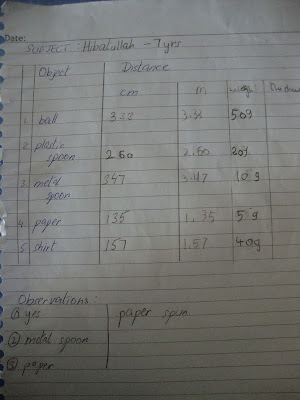 Date:
SUBJECT : Hibatullah - 7 yrs
Object Distance
cm m weight
1. ball 333 3.33 50g
2. plastic spoon 260 2.60 20g
3. metal spoon 347 3.47 10g
4. paper 135 1.35 5g
5. shirt 157 1.57 40g
Observations :
① yes paper spin
② metal spoon
③ paper